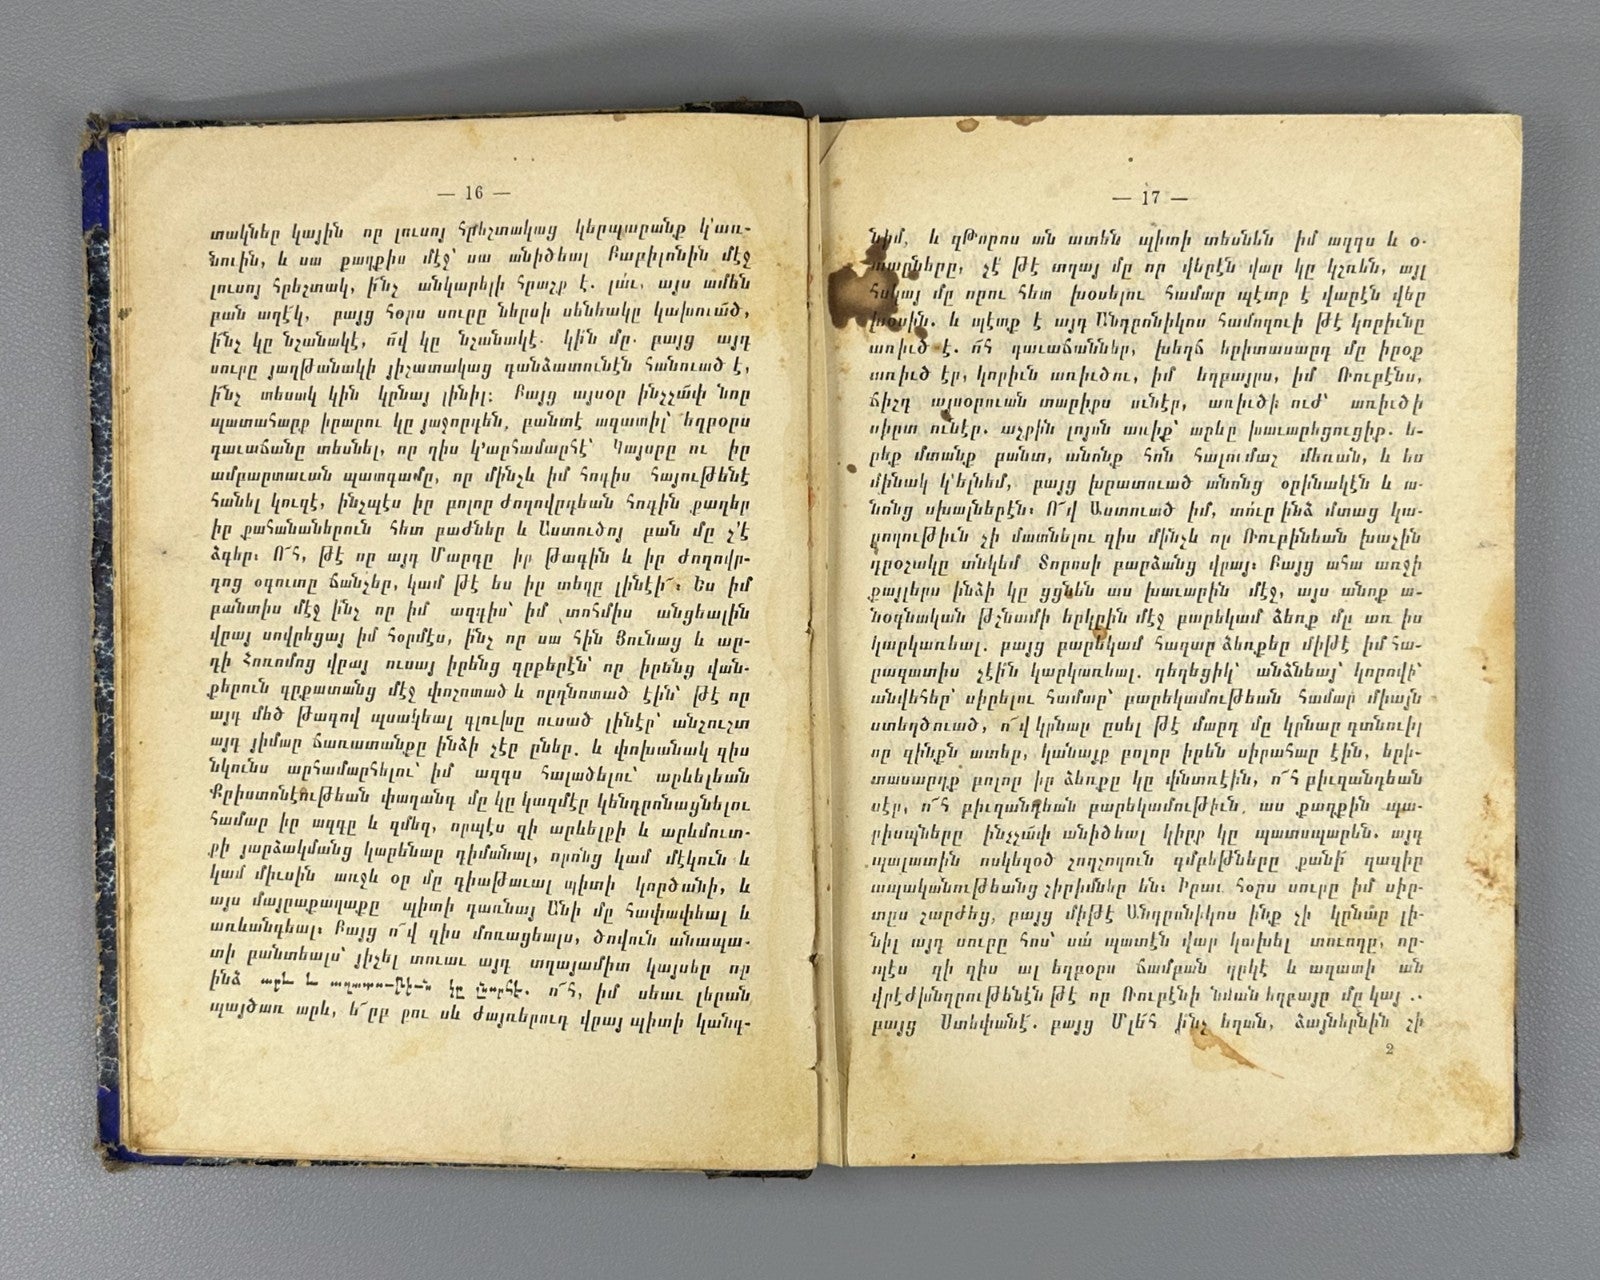 — 16 —
տակներ կային որ լուսոյ հրեշտակաց կերպարանք կ՚առ-
նուին, և սա քաղքիս մէջ՝ սա անիծեալ Բաբիլոնին մէջ
լուսոյ հրեշտակ, ի՞նչ անկարելի հրաշք է. լա՛ւ, այս ամեն
բան աղէկ, բայց հօրս սուրը ներսի սենեակը կախուած,
ի՞նչ կը նշանակէ, ո՞վ կը նշանակէ. կի՞ն մը. բայց այդ
սուրը յաղթանակի յիշատակաց գանձատունէն հանուած է,
ի՞նչ տեսակ կին կրնայ լինիլ։ Բայց այսօր ինչչա՜փ նոր
պատահարք իրարու կը յաջորդեն, բանտէ ազատիլ՝ եղբօրս
դաւաճանը տեսնել, որ զիս կ՚արհամարհէ՝ Կայսրը ու իր
ամբարտաւան պատգամը, որ մինչև իմ հոգիս հայութենէ
հանել կուզէ, ինչպէս իր բոլոր ժողովրդեան հոգին քաղեր
իր քահանաներուն հետ բաժներ և Աստուծոյ բան մը չ՚է
ձգեր։ Ո՜հ, թէ որ այդ Մարդը իր թագին և իր ժողովր-
դոց օգուտը ճանչեր, կամ թէ ես իր տեղը լինէի՜։ Ես իմ
բանտիս մէջ ինչ որ իմ ազգիս՝ իմ տոհմիս անցեալին
վրայ սովրեցայ իմ հօրմէս, ինչ որ սա հին Յունաց և ար-
դի Հոռոմոց վրայ ուսայ իրենց գրքերէն՝ որ իրենց վան-
քերուն գրքատանց մէջ փոշոտած և որդնոտած էին՝ թէ որ
այդ մեծ թագով պսակեալ գլուխը ուսած լինէր՝ անշուշտ
այդ յիմար ճառատանքը ինձի չէր ըներ. և փոխանակ զիս
նկունս արհամարհելու՝ իմ ազգս հալածելու՝ արևելեան
Քրիստոնէութեան փաղանգ մը կը կազմէր կենդրոնացնելու
համար իր ազգը և զմեզ, որպէս զի արևելքի և արևմուտ-
քի յարձակմանց կարենար դիմանալ, որոնց կամ մէկուն և
կամ միւսին առջև օր մը դիաթաւալ պիտի կործանի, և
այս մայրաքաղաքը պիտի դառնայ Անի մը հափափեալ և
առևանգեալ։ Բայց ո՜վ զիս մոռացեալս, ծովուն անապա-
տի բանտեալս՝ յիշել տուաւ այդ տղայամիտ կայսեր որ
ինձ արև և ազատութիւն կը ընարհէ. ո՜հ, իմ սեաւ լերան
պայծառ արև, ե՜րբ քու սև ժայռերուդ վրայ պիտի կանգ-
— 17 —
նիմ, և զԹորոս ան ատեն պիտի տեսնեն իմ ազգս և օ-
տարները, չէ՛ թէ տղայ մը որ վերէն վար կը կշռեն, այլ
հսկայ մը որու հետ խօսելու համար պէտք է վարէն վեր
խօսին. և պէտք է այդ Անդրոնիկոս համոզուի թէ կորիւնը
առիւծ է. ո՜հ դաւաճաններ, խեղճ երիտասարդ մը իրօք
առիւծ էր, կորիւն առիւծու, իմ եղբայրս, իմ Ռուբէնս,
ճիշդ այսօրուան տարիքս ունէր, առիւծի ուժ՝ առիւծի
սիրտ ունէր. աչքին լոյսն առիք՝ արևը խաւարեցուցիք. ե-
րեք մտանք բանտ, անոնք հոն հալումաշ մեռան, և ես
մինակ կ՚ելնեմ, բայց խրատուած անոնց օրինակէն և ա-
նոնց սխալներէն։ Ո՜վ Աստուած իմ, տուր ինձ մտաց կա-
րողութիւն չի մատնելու զիս մինչև որ Ռուբինեան խաչին
դրօշակը տնկեմ Տորոսի բարձանց վրայ։ Բայց ահա առջի
քայլերս ինձի կը ցցնեն աս խաւարին մէջ, այս անոք ա-
նօգնական թշնամի երկրին մէջ բարեկամ ձեռք մը առ իս
կարկառեալ. բայց բարեկամ հազար ձեռքեր միթէ իմ հա-
րազատիս չէի՞ն կարկառեալ. գեղեցիկ՝ անձնեայ՝ կորովի՝
անվեհեր՝ սիրելու համար՝ բարեկամութեան համար միայն
ստեղծուած, ո՜վ կրնար ըսել թէ մարդ մը կրնար գտնուիլ
որ զինքն ատեր, կանայք բոլոր իրեն սիրահար էին, երի-
տասարդք բոլոր իր ձեռքը կը փնտռէին, ո՜հ բիւզանդեան
սէր, ո՜հ բիւզանդեան բարեկամութիւն, աս քաղքին պա-
րիսպները ինչչա՜փ անիծեալ կիրք կը պատսպարեն. այդ
պալատին ոսկեզօծ շողշողուն գմբեթները քանի՜ գազիր
ապականութեանց շիրիմներ են։ Իրաւ հօրս սուրը իմ սիր-
տըս շարժեց, բայց միթէ Անդրոնիկոս ինք չի կրնար լի-
նիլ այդ սուրը հոս՝ սա՛ պատէն վար կախել տուողը, որ-
պէս զի զիս ալ եղբօրս ճամբան ղրկէ և ազատի ան
վրէժխնդրութենէն թէ որ Ռուբէնի նման եղբայր մը կայ ..
բայց Ստեփանէ՜. բայց Մլե՜հ ի՞նչ եղան, ձայներնին չի
2